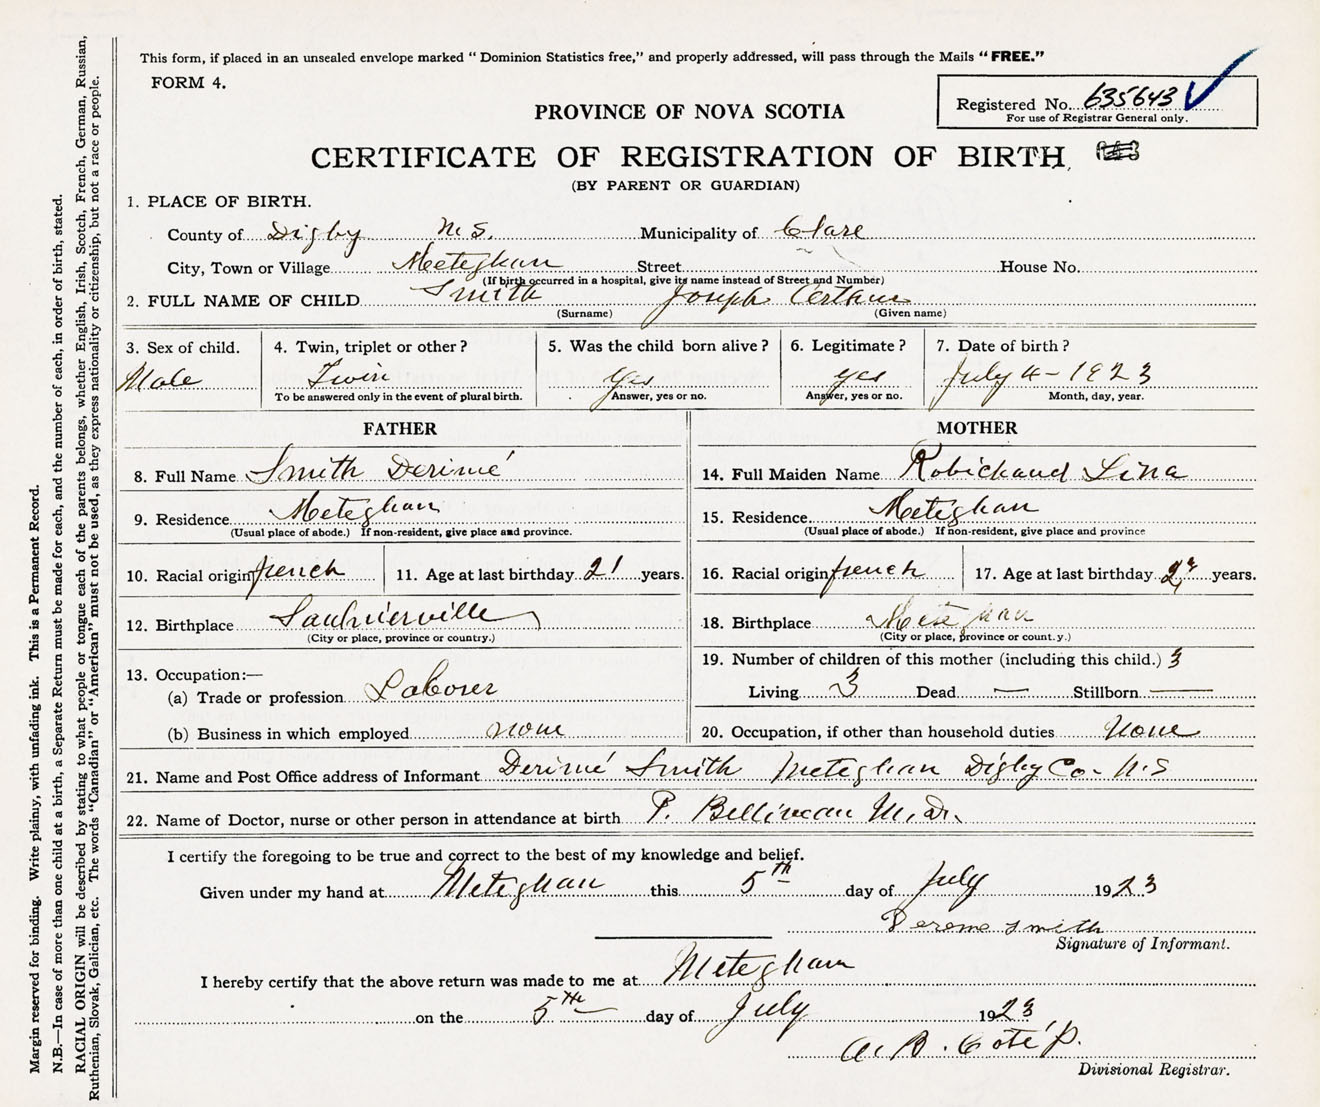 This form, if placed in an unsealed envelope marked "Dominion Statistics free," and properly addressed, will pass through the Mails "FREE."
FORM 4.
Registered No. 635643
For use of Registrar General only.
PROVINCE OF NOVA SCOTIA
CERTIFICATE OF REGISTRATION OF BIRTH
(BY PARENT OR GUARDIAN)
1. PLACE OF BIRTH.
County of Digby N.S. Municipality of Clare
City, Town or Village Meteghan Street House No.
(If birth occurred in a hospital, give its name instead of Street and Number)
2. FULL NAME OF CHILD Smith Joseph Arthur
(Surname) (Given name)
3. Sex of child. 4. Twin, triplet or other? 5. Was the child born alive? 6. Legitimate? 7. Date of birth?
Male Twin Yes yes July 4 - 1923
To be answered only in the event of plural birth. Answer, yes or no. Answer, yes or no. Month, day, year.
FATHER MOTHER
8. Full Name Smith Derimé 14. Full Maiden Name Robichaud Lina
9. Residence Meteghan 15. Residence Meteghan
(Usual place of abode.) If non-resident, give place and province. (Usual place of abode.) If non-resident, give place and province
10. Racial origin french 11. Age at last birthday 21 years. 16. Racial origin french 17. Age at last birthday years.
12. Birthplace Saulnierville 18. Birthplace Meteghan
(City or place, province or country.) (City or place, province or count.y.)
13. Occupation:— 19. Number of children of this mother (including this child.) 3
(a) Trade or profession Laborer Living 3 Dead — Stillborn —
(b) Business in which employed none 20. Occupation, if other than household duties None
21. Name and Post Office address of Informant Derimé Smith Meteghan Digby Co - N.S
22. Name of Doctor, nurse or other person in attendance at birth P. Belliveau M.D.
I certify the foregoing to be true and correct to the best of my knowledge and belief.
Given under my hand at Meteghan this 5th day of July 1923
Derome Smith
Signature of Informant.
I hereby certify that the above return was made to me at Meteghan
on the 5th day of July 1923
A. B. Coté p.
Divisional Registrar.
Margin reserved for binding. Write plainly, with unfading ink. This is a Permanent Record.
N.B.—In case of more than one child at a birth, a Separate Return must be made for each, and the number of each, in order of birth, stated.
RACIAL ORIGIN will be described by stating to what people or tongue each of the parents belongs, whether English, Irish, Scotch, French, German, Russian,
Ruthenian, Slovak, Galician, etc. The words "Canadian" or "American" must not be used, as they express nationality or citizenship, but not a race or people.